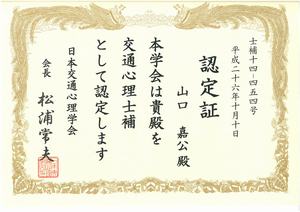 士補十四-四五四号
平成二十六年十月十日
認定証
山口 嘉公殿
本学会は貴殿を
交通心理士補
として認定します
日本交通心理学会
会長 松浦常夫